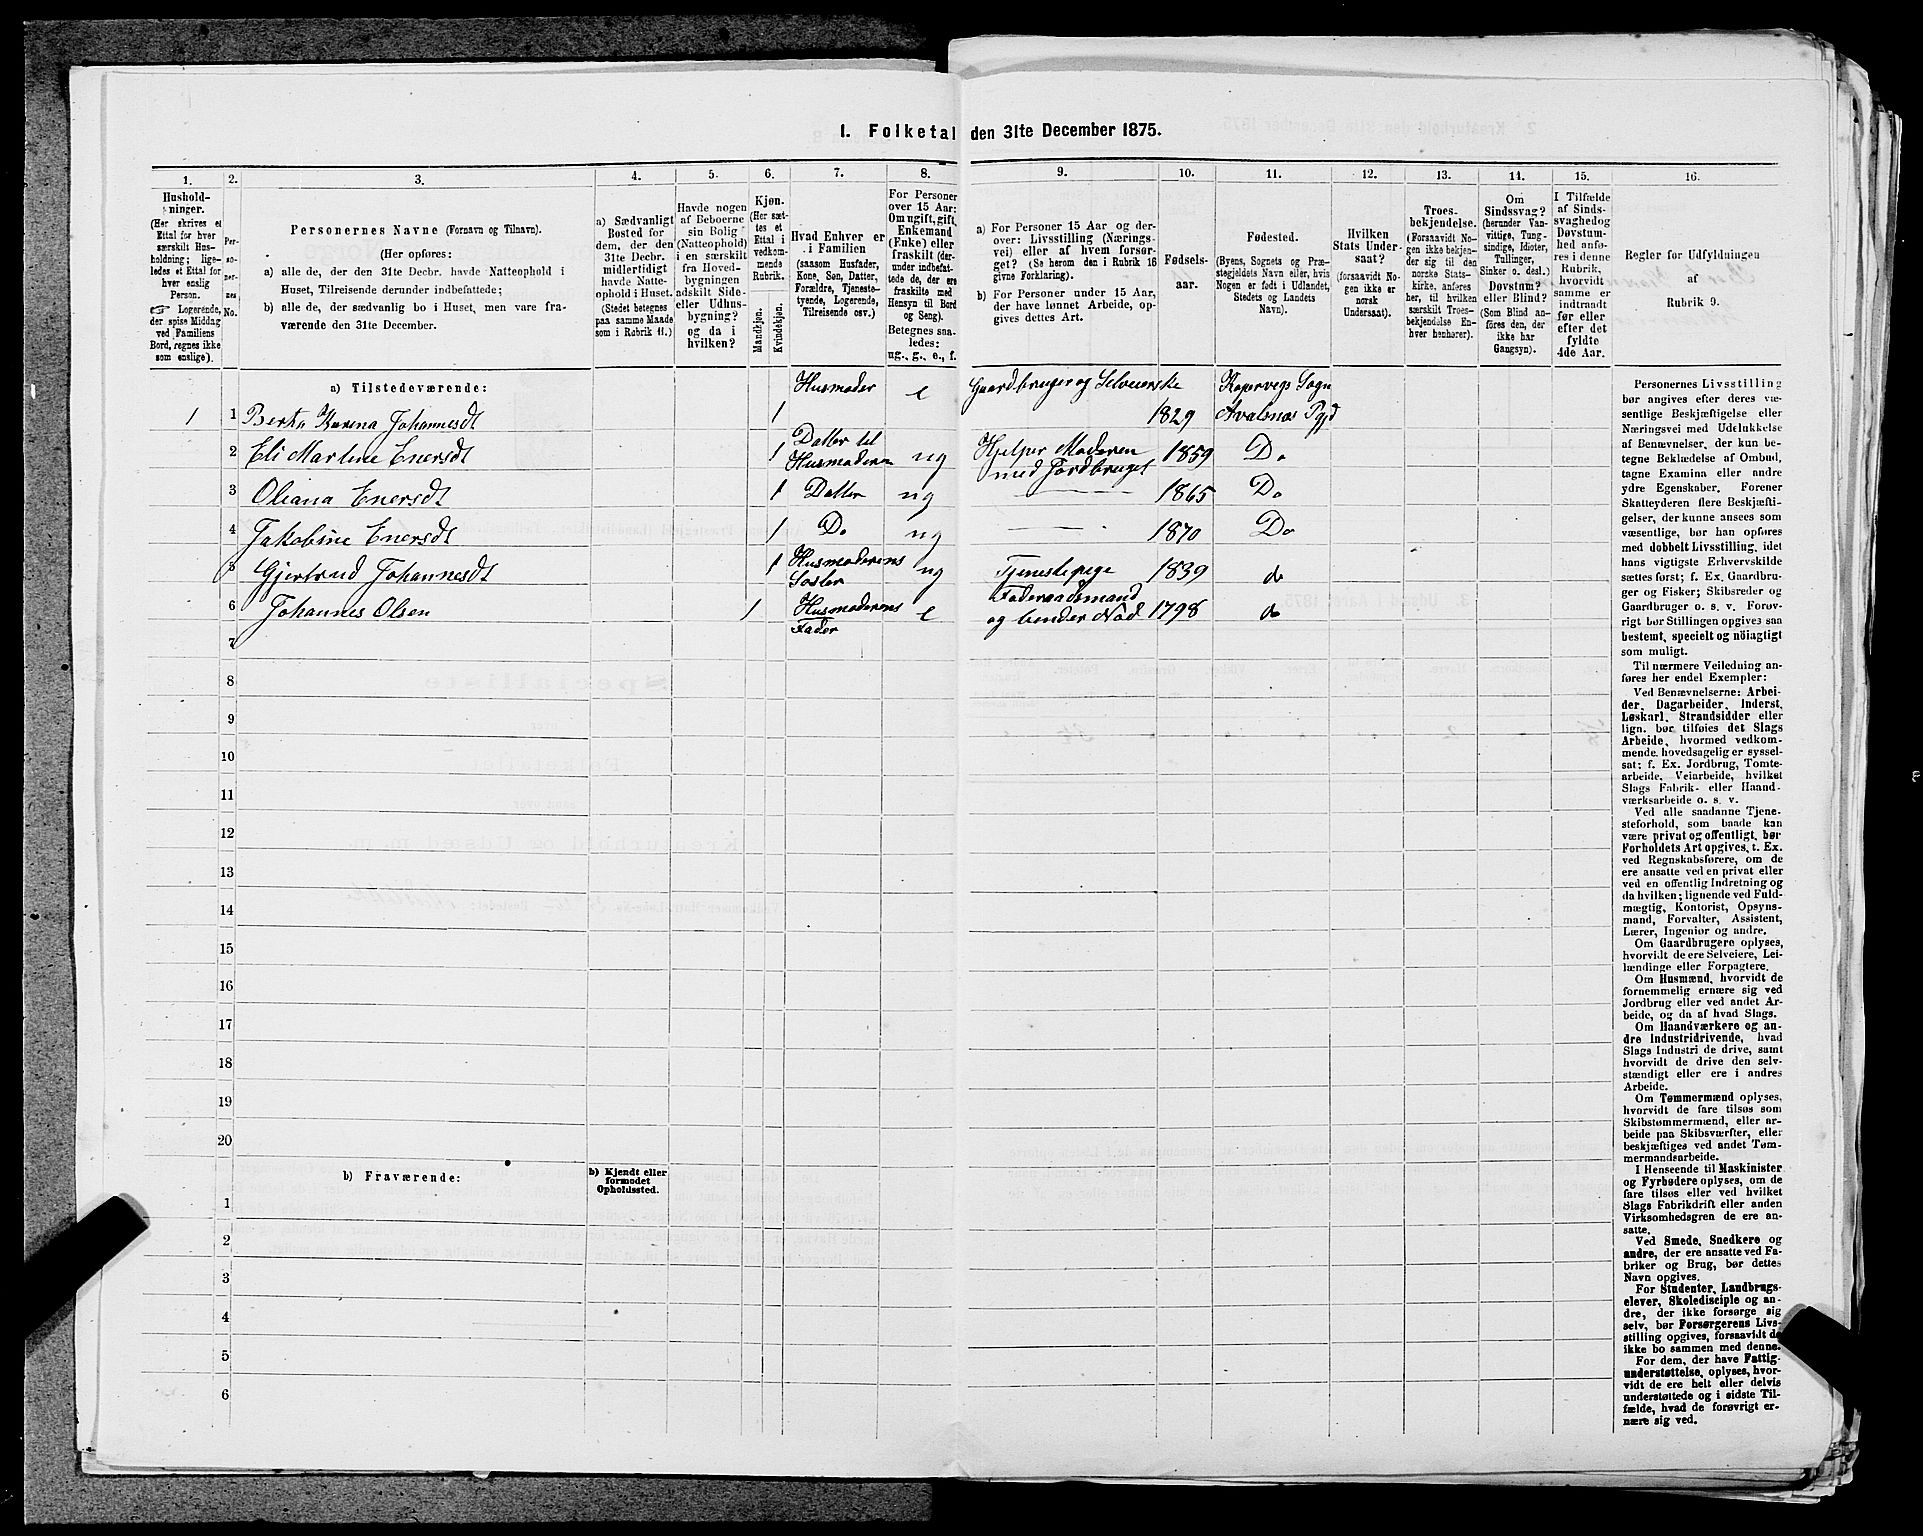 1. Folketal den 31te December 1875.
1.
2.
3.
4.
5.
6.
7.
8.
9.
10.
11.
12.
13.
14.
15.
16.
Hushold-
ninger.
(Her skrives et
Ettal for hver
særskilt Hus-
holdning; lige-
ledes et Ettal for
hver enslig
Person.
☞ Logerende,
der spise Middag
ved Familiens
Bord, regnes ikke
som enslige).
Per-
so-
ner-
nes
No.
Personernes Navne (Fornavn og Tilnavn).
(Her opføres:
a) alle de, der den 31te Decbr. havde Natteophold i
Huset, Tilreisende derunder indbefattede;
b) alle de, der sædvanlig bo i Huset, men vare fra-
værende den 31te December.
a) Sædvanligt
Bosted for
dem, der den
31te Decbr.
midlertidigt
havde Natte-
ophold i Huset.
(Stedet betegnes
paa samme Maade
som i Rubrik 11.)
Havde nogen
af Beboerne
sin Bolig
(Natteophold)
i en særskilt
fra Hoved-
bygningen
adskilt Side-
eller Udhus-
bygning?
og da i
hvilken?
Kjøn.
(Her sæt-
tes et
Ettal i
vedkom-
mende
Rubrik.
Mandkjøn.
Kvindekjøn.
Hvad Enhver er
i Familien
(saasom Husfader,
Kone, Søn, Datter,
Forældre, Tjeneste-
tyende, Logerende,
Tilreisende osv.)
For Personer
over 15 Aar:
Om ugift, gift,
Enkemand
(Enke) eller
fraskilt (der-
under indbefat-
tede de, der ere
fraskilte med
Hensyn til Bord
og Seng).
Betegnes saa-
ledes:
ug., g., e., f.
a) For Personer 15 Aar og der-
over: Livsstilling (Nærings-
vei) eller af hvem forsør-
get? (Se herom den i Rubrik 16
givne Forklaring).
b) For Personer under 15 Aar,
der have lønnet Arbeide, op-
gives dettes Art.
Fødsels-
aar.
Fødested.
(Byens, Sognets og Præ-
stegjeldets Navn eller, hvis
Nogen er født i Udlandet,
Stedets og Landets
Navn).
Hvilken
Stats Under-
saat?
(forsaavidt No-
gen ikke er
norsk
Undersaat).
Troes-
bekjendelse.
(Forsaavidt No-
gen ikke bekjen-
der sig til den
norske Stats-
kirke, anføres
her, til hvilken
særskilt Troes-
bekjendelse En-
hver henhører).
Om
Sindssvag?
(herunder Van-
vittige, Tung-
sindige, Idioter,
Tullinger,
Sinker o. desl.)
Døvstum?
eller Blind?
(Som Blind an-
føres den, der
ikke har
Gangsyn).
I Tilfælde
af Sinds-
svaghed og
Døvstum-
hed anfø-
res i denne
Rubrik,
hvorvidt
samme er
indtraadt
før eller
efter det
fyldte
4de Aar.
Regler for Udfyldningen
af
Rubrik 9.
a) Tilstedeværende:
1 1 Berta Karina Johannesdt 1 Husmoder e Gaardbruger og Selveierske 1829 Kopervigs Sogn
Avalsnæs Pgjd
2 Eli Martine Enersdt 1 Datter til
Husmoderen ug Hjelper Moderen
med Jordbruget 1859 Do
3 Oliana Enersdt 1 Datter ug 1865 Do
4 Jakobine Enersdt 1 Do ug 1870 Do
5 Gjertrud Johannesdt 1 Husmoderens
Søster ug Tjenestepige 1839 do
6 Johannes Olsen 1 Husmoderens
Fader e Føderaadsmand
og bender Nod 1798 do
7
8
9
10
11
12
13
14
15
16
17
18
19
20
b) Fraværende:
b) Kjendt eller
formodet
Opholdssted.
1
2
3
4
5
6
Personernes Livsstilling
bør angives efter deres væ-
sentlige Beskjæftigelse eller
Næringsvei med Udelukkelse
af Benævnelser, der kun be-
tegne Beklædelse af Ombud,
tagne Examina eller andre
ydre Egenskaber. Forener
Skatteyderen flere Beskjæfti-
gelser, der kunne ansees som
væsentlige, bør han opføres
med dobbelt Livsstilling, idet
hans vigtigste Erhvervskilde
sættes først; f. Ex. Gaardbru-
ger og Fisker; Skibsreder og
Gaardbruger o. s. v. Forøv-
rigt bør Stillingen opgives saa
bestemt, specielt og nöiagtigt
som muligt.
Til nærmere Veiledning an-
føres her endel Exempler:
Ved Benævnelserne: Arbei-
der, Dagarbeider, Inderst,
Løskarl, Strandsidder eller
lign. bør tilføies det Slags
Arbeide, hvormed vedkom-
mende hovedsagelig er syssel-
sat; f. Ex. Jordbrug, Tomte-
arbeide, Veiarbeide, hvilket
Slags Fabrik- eller Haand-
værksarbeide o. s. v.
Ved alle saadanne Tjene-
steforhold, som baade kan
være privat og offentligt, bør
Forholdets Art opgives, t. Ex.
ved Regnskabsførere, om de
ere ansatte ved en privat eller
ved en offentlig Indretning og
da hvilken; lignende ved Fuld-
mægtig, Kontorist, Opsyns-
mand, Forvalter, Assistent,
Lærer, Ingeniør og andre.
Om Gaardbrugere oplyses,
hvorvidt de ere Selveiere, Lei-
lændinge eller Forpagtere.
Om Husmænd, hvorvidt de
fornemmelig ernære sig ved
Jordbrug eller ved andet Ar-
beide, og da af hvad Slags.
Om Haandværkere og an-
dre Industridrivende, hvad
Slags Industri de drive, samt
hvorvidt de drive den selv-
stændigt eller ere i andres
Arbeide.
Om Tømmermænd oplyses,
hvorvidt de fare tilsøs som
Skibstømmermænd, eller ar-
beide paa Skibsværfter, eller
beskjæftiges ved andet Tøm-
mermandsarbeide.
I Henseende til Maskinister
og Fyrbødere oplyses, om de
fare tilsøs eller ved hvilket
Slags Fabrikdrift eller anden
Virksomhedsgren de ere an-
satte.
Ved Smede, Snedkere og
andre, der ere ansatte ved Fa-
briker og Brug, bør dettes
Navn opgives.
For Studenter, Landbrugs-
elever, Skoledisciple og an-
dre, der ikke forsørge sig
selv, bør Forsørgerens Livs-
stilling opgives, forsaavidt de
ikke bo sammen med denne.
For dem, der have Fattig-
understøttelse, oplyses, hvor-
vidt de ere helt eller delvis
understøttede og i sidste Til-
fælde, hvad de forøvrigt er-
nære sig ved.